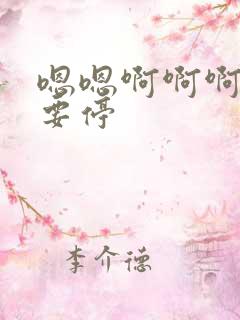 嗯嗯啊啊啊
要停
李介德